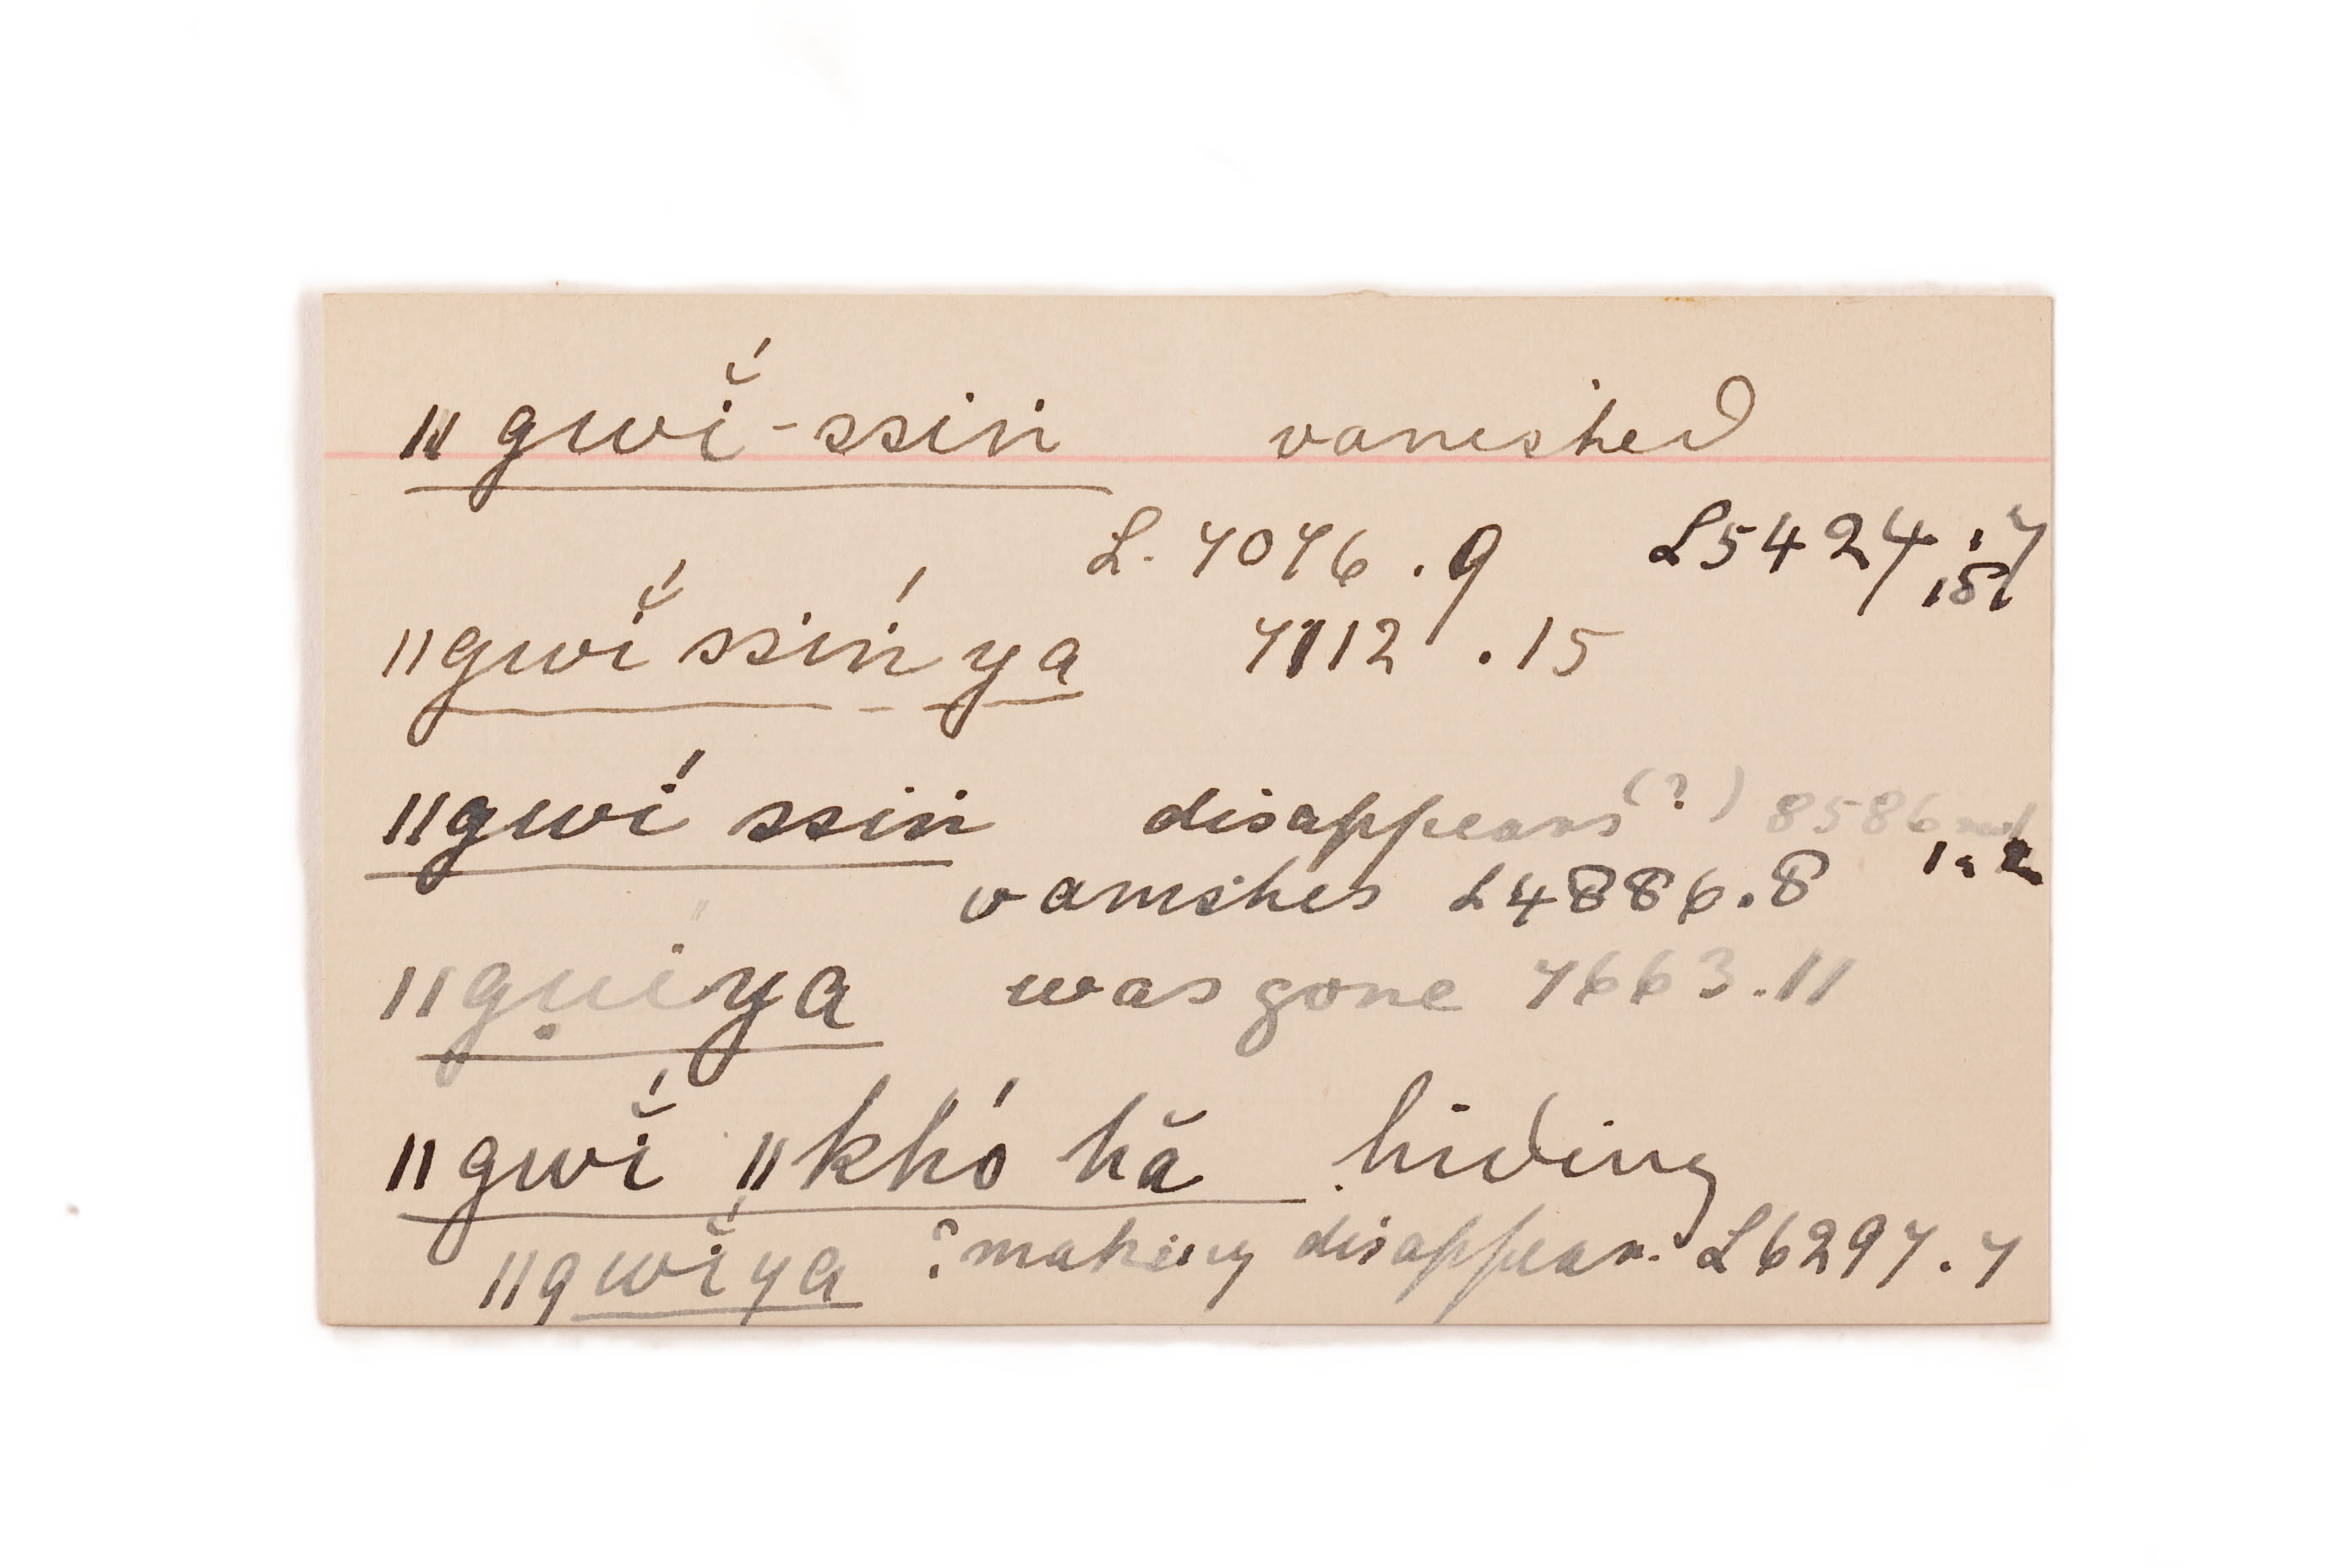 ǁgwĭ́-ssin vanished
L. 7076.9 L5424.7
.8
ǁgwĭ́ ssiń ya 7112.15
ǁgwí ssin disappears(?) 8586
vanishes L4886.8
ǁgu̥íya was gone 7663.11
ǁgwĭ́ ǁkhó hă hiding
ǁgwĭ́ya ?making disappear. L6297.7